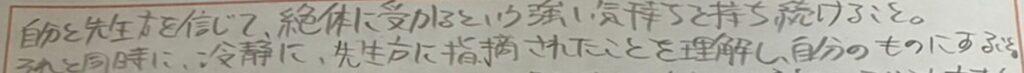 自分と先生方を信じて、絶体に受かるという強い気持ちを持ち続けること。
それと同時に、冷静に、先生方に指摘されたことを理解し、自分のものにすること。